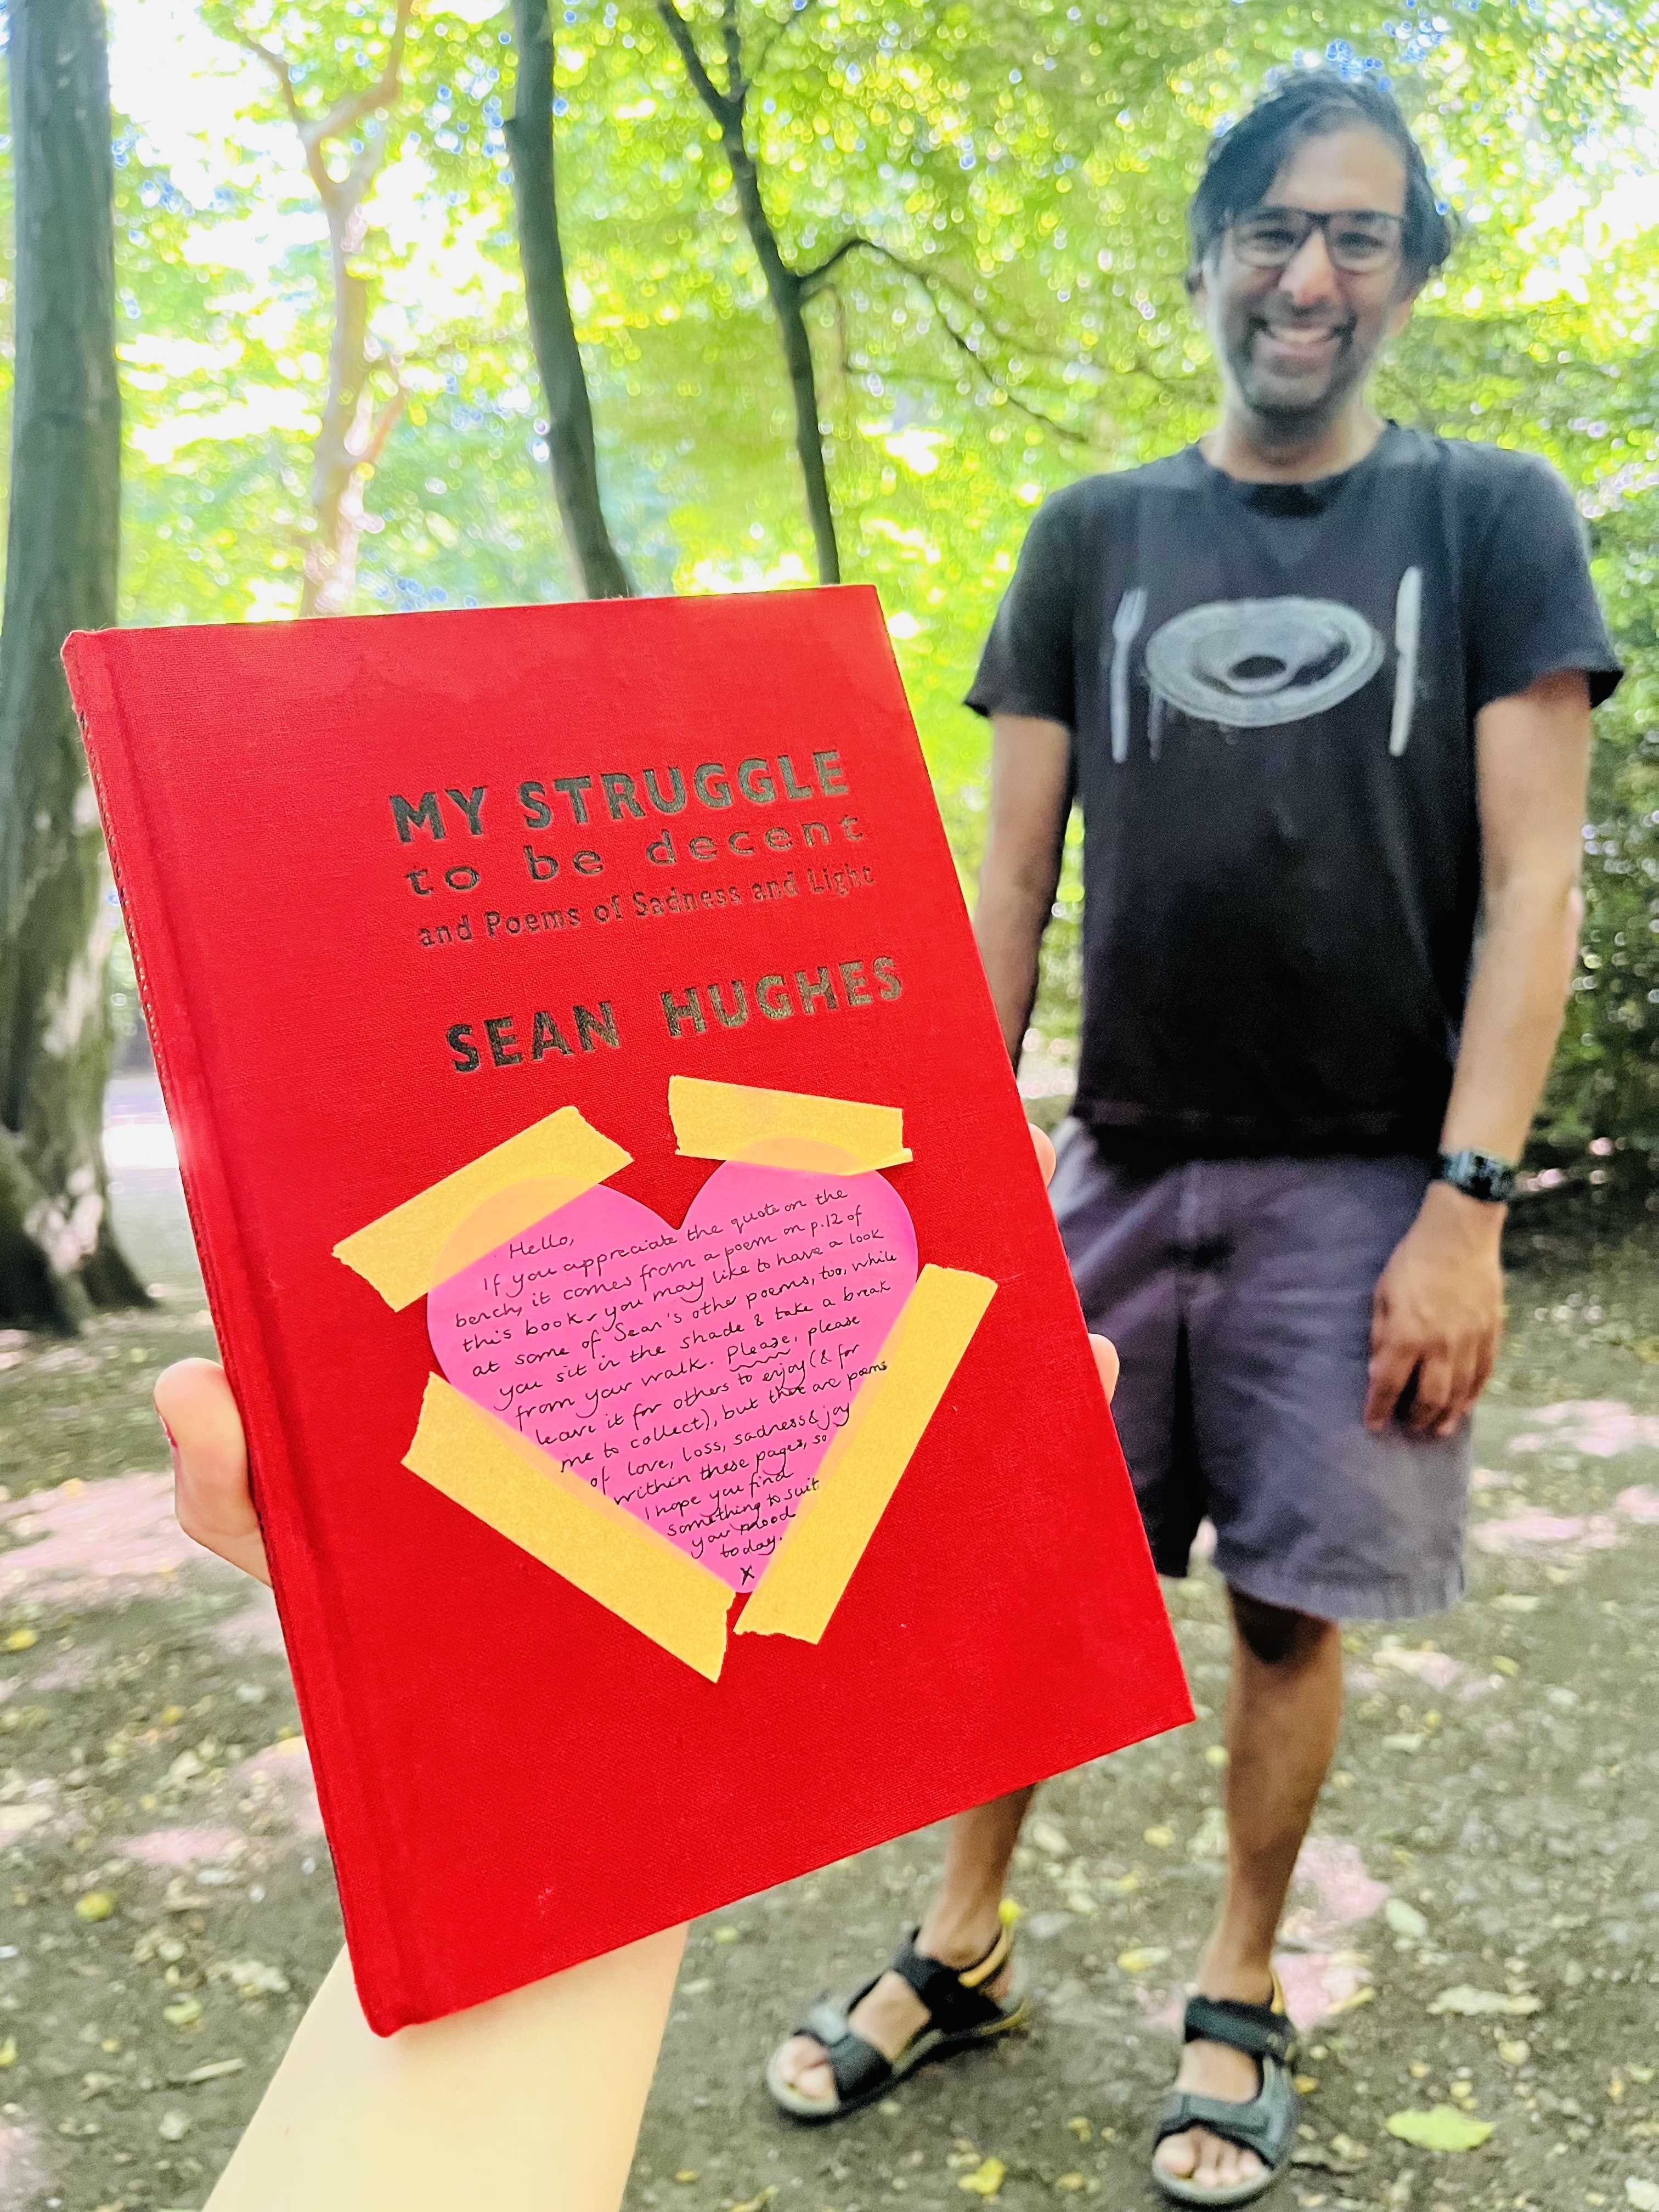 MY STRUGGLE
to be decent
and Poems of Sadness and Light
SEAN HUGHES
Hello,
If you appreciate the quote on the
bench, it comes from a poem on p.12 of
this book - you may like to have a look
at some of Sean's other poems, too, while
you sit in the shade & take a break
from your walk. Please, please
leave it for others to enjoy (& for
me to collect), but there are poems
of love, loss, sadness & joy
within these pages, so
I hope you find
something to suit
your mood
today.
x